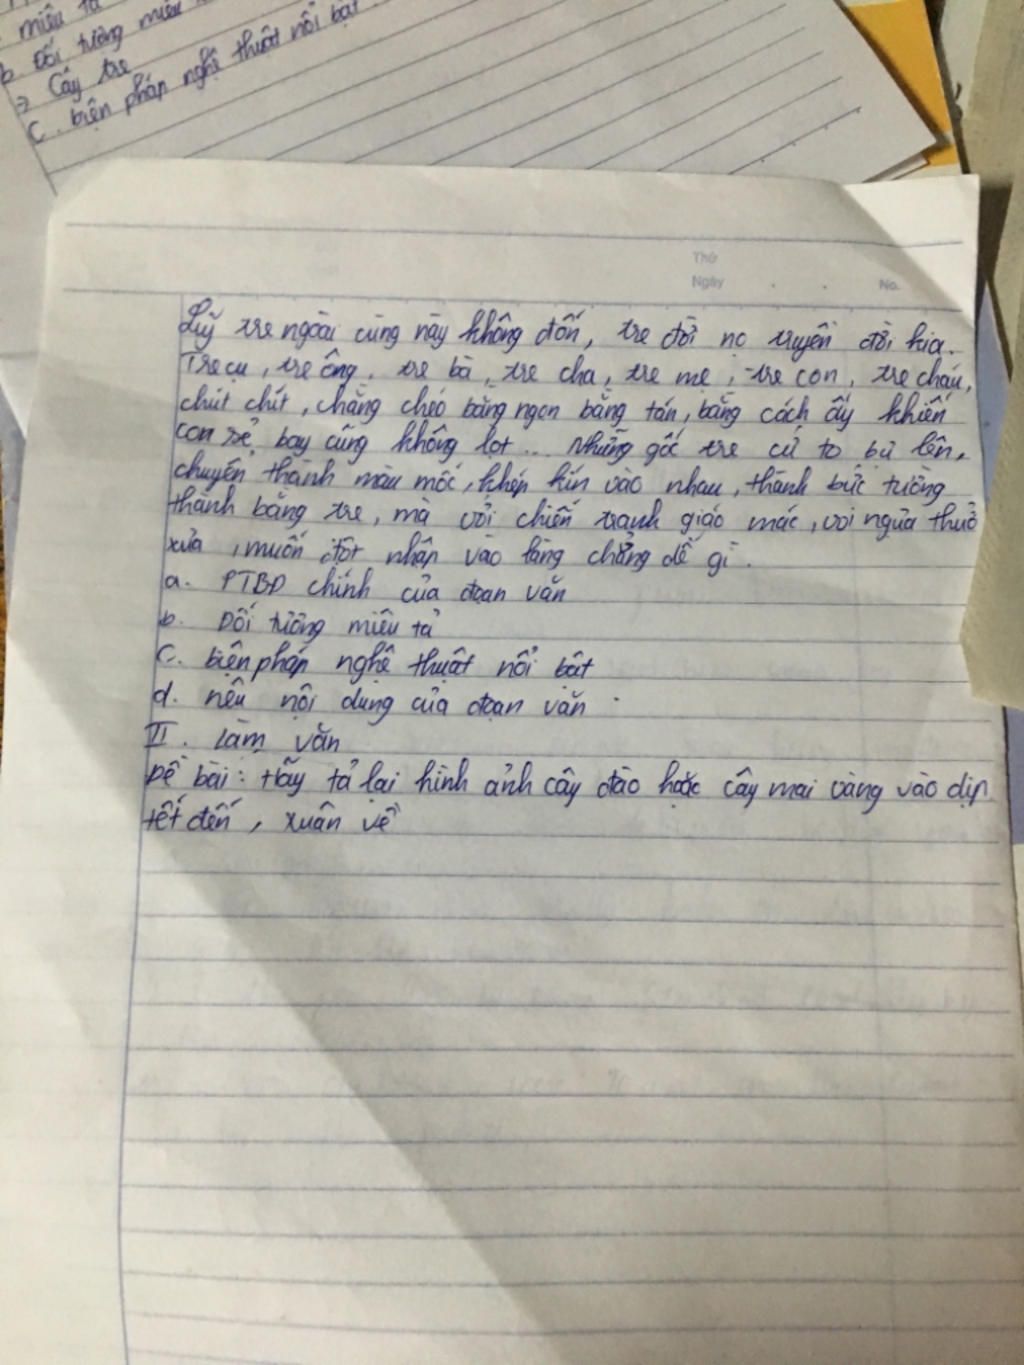 miêu tả
b. Đối tượng miêu
=> Cây tre
C. biện pháp nghệ thuật nổi bật
Thứ
Ngày . . No.
Luỹ tre ngoài cùng này không đốn, tre đời nọ truyền đời kia.
Tre cụ, tre ông, tre bà, tre cha, tre mẹ, tre con, tre cháu,
chút chít, chằng chéo bằng ngọn bằng tán, bằng cách ấy khiến
con sẻ bay cũng không lọt... Những gốc tre cứ to bù lên,
chuyển thành màu mốc, khép kín vào nhau, thành bức tường
thành bằng tre, mà với chiến tranh giáo mác, voi ngựa thuở
xưa, muốn đột nhập vào làng chẳng dễ gì.
a. PTBĐ chính của đoạn văn
b. Đối tượng miêu tả
C. biện pháp nghệ thuật nổi bật
d. nêu nội dung của đoạn văn.
II. Làm văn
Đề bài: Hãy tả lại hình ảnh cây đào hoặc cây mai vàng vào dịp
tết đến, xuân về